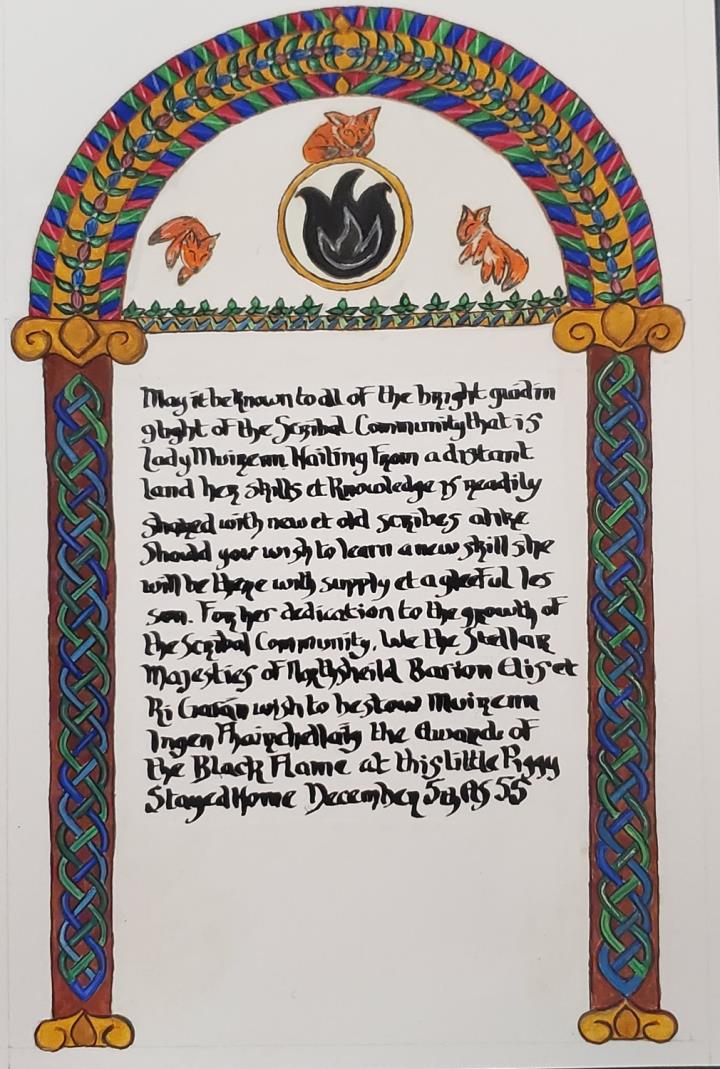 May it be known to all of the bright guidin
glight of the Scribal Community that is
Lady Muirenn. Hailing From a distant
land her skills et Knowledge is readily
shared with new et old scribes alike
Should you wish to learn a new skill she
will be there with supply et a gleeful les
son. For her dedication to the growth of
the Scribal Community, We the Stellar
Majesties of Northsheild Barton Elis et
Ri Ciarán wish to bestow Muirenn
Ingen the Award of
the Black Flame at this little Piggy
Stayed Home December 5th AS 55